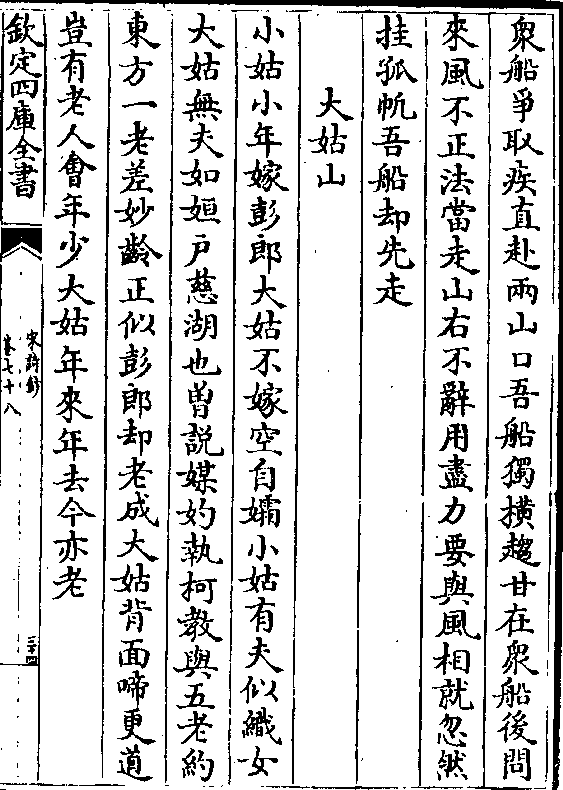 衆船爭取疾直赴兩山口吾船獨橫趨甘在衆船後問
來風不正法當走山右不辭用盡力要與風相就忽然
挂孤帆吾船却先走
大姑山
小姑小年嫁彭郎大姑不嫁空自孀小姑有夫似織女
大姑無夫如姮戸慈湖也曽説媒妁執柯敎與五老約
東方一老差妙齡正似彭郎却老成大姑背面啼更道
豈有老人會年少大姑年來年去今亦老
欽定四庫全書
宋詩鈔
卷七十八
三十四